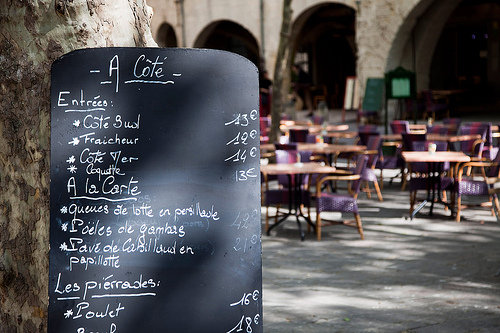 - A Côté -
Entrées:
* Côté Sud 13€
* Fraicheur 12€
* Côté Mer 14€
* Coquette 13€
A la Carte
* Queues de lotte en persillade
* Poêles de gambas
* Pavé de Cabillaud en
papillotte
Les pierrades:
* Poulet 16€
18€